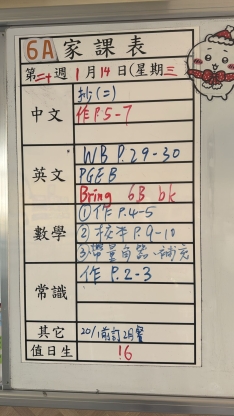 6A 家課表
第二十週 1月14日(星期三
中文
抄(二)
作P.5-7
英文
WB P.29-30
PGE B
Bring 6B bk
數學
①作P.4-5
②校本P.9-10
③帶量角器、補充
常識
作P.2-3
其它
20/1前訂2月餐
值日生
16